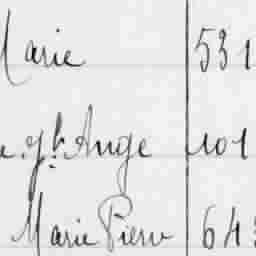 Marie 531
gh. Ange 101
Marie Pierre 643